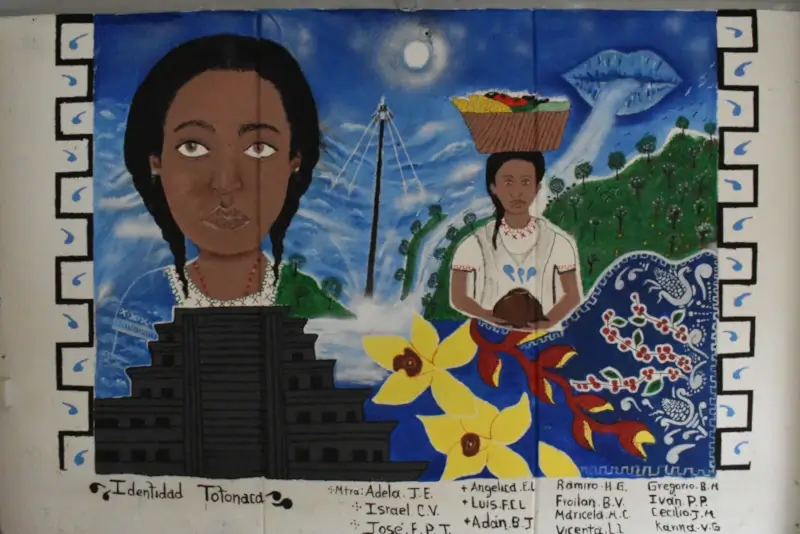 Identidad Totonaca
Mtra: Adela. J.E.
Israel C.V.
José. F. P. T.
Angelica. E.L
Luis. F.C.L
Adán. B. J
Ramiro. H. G.
Froilan. B. V.
Maricela. M. C.
Vicenta. L.
Gregorio. B. M
Iván. P.P.
Cecilio. J. M
Karina. V. G